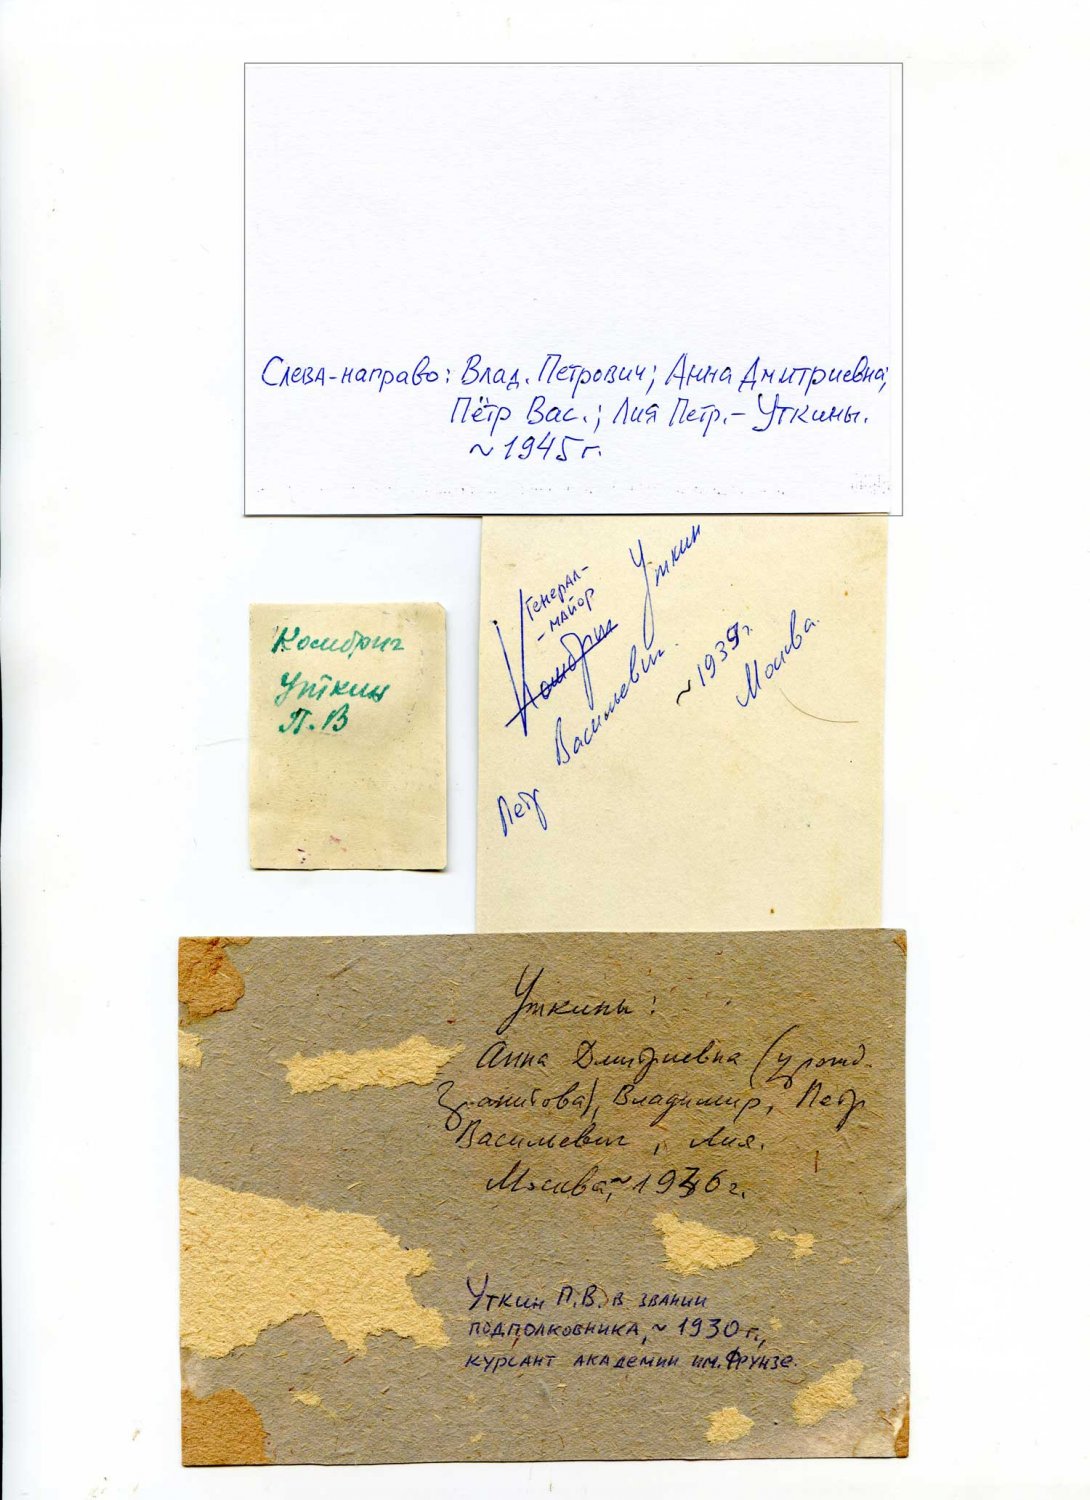 Слева-направо: Влад. Петрович; Анна Дмитриевна;
Пётр Вас.; Лия Петр. – Уткины.
~1945 г.
Комбриг
Уткин
П.В
Генерал-
-майор
Комбриг Уткин
Петр Васильевич.
~1939г.
Москва.
Уткины:
Анна Дмитриевна (урожд.
Гранитова), Владимир, Петр
Васильевич, Лия.
Москва, ~19 6 г.
Уткин П.В. в звании
подполковника, ~ 1930 г.,
курсант академии им. Фрунзе.